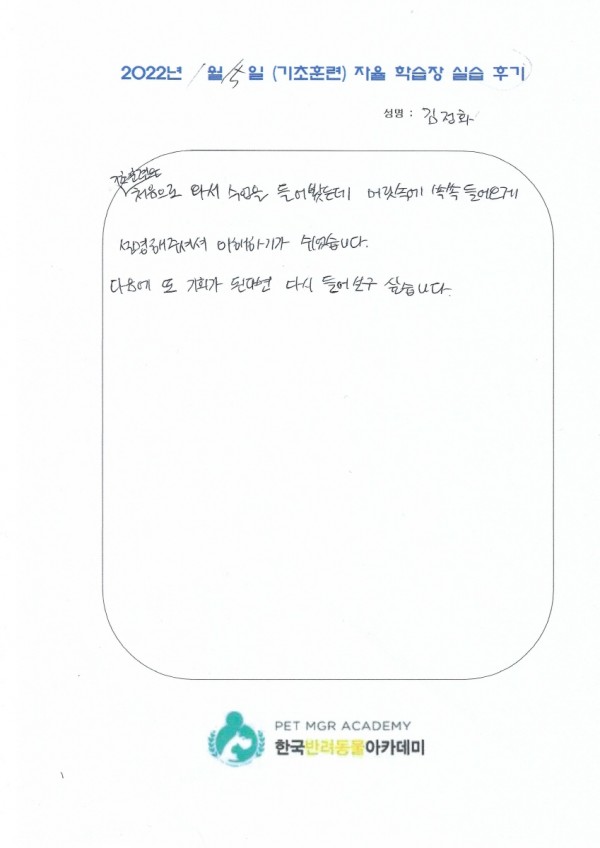 2022년 1월 5일 (기초훈련) 자율 학습장 실습 후기
성명 : 김정화
기초훈련은
처음으로 와서 수업을 들어봤는데 머릿속에 쏙쏙 들어오게
설명해주셔서 이해하기가 쉬웠습니다.
다음에 또 기회가 된다면 다시 들어보구 싶습니다.
PET MGR ACADEMY
한국반려동물아카데미